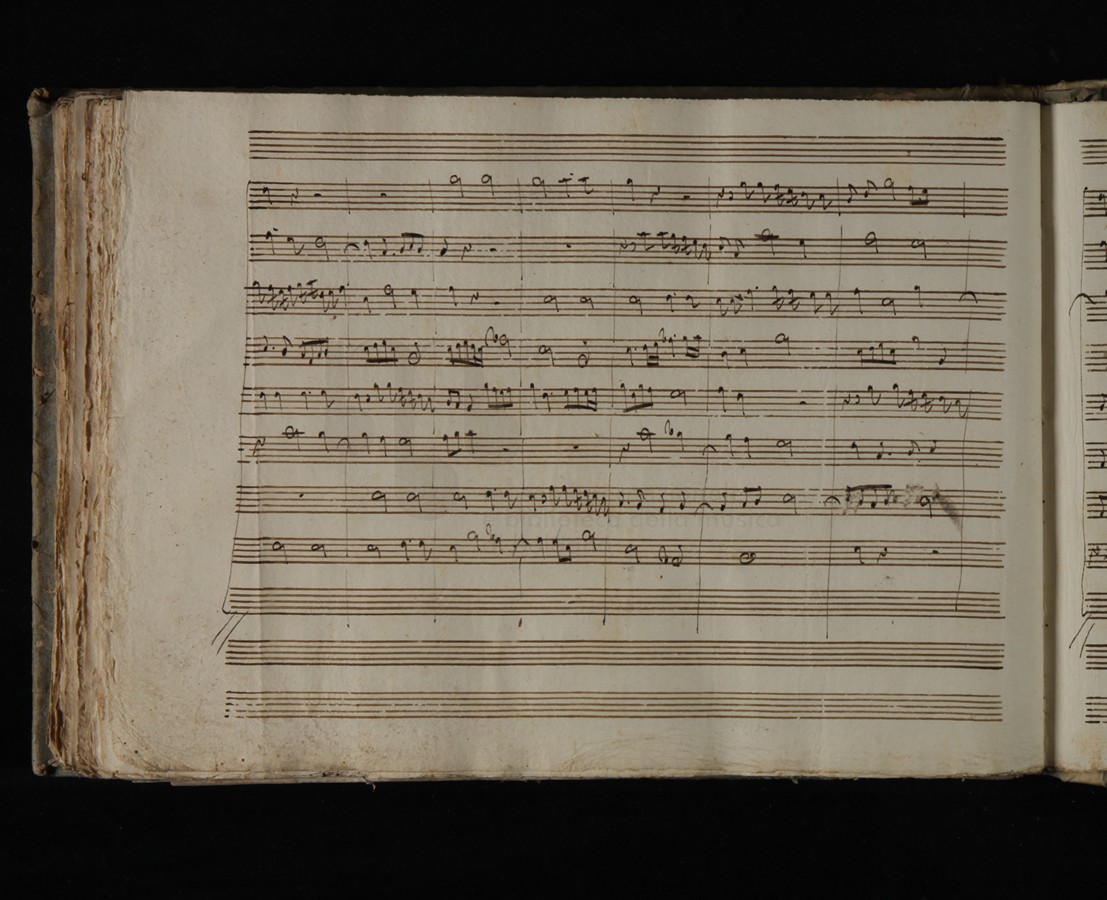 biblioteca della musica